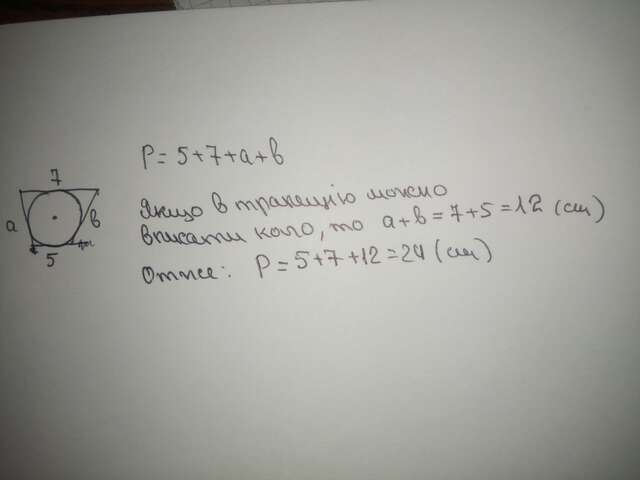 P = 5+7+a+b
7
a
b
5
Якщо в трапецію можно
вписати коло, то a+b = 7+5 = 12 (см)
Отже: P = 5+7+12 = 24 (см)